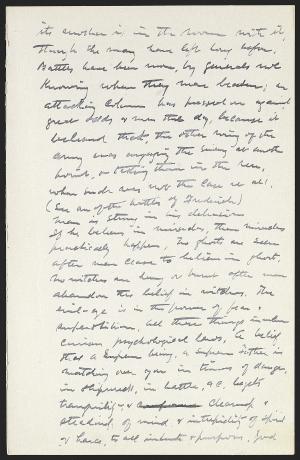 its another is, in the room with it,
though the may have left long before.
Battles have been won, by generals not
knowing when they were beaten; an
attacking column has pressed on against
great odds & won the day, because it
believed that, the other wing of the
army was engaging the enemy at another
point, or taking them in the rear,
when such was not the case at all.
(See one of the battles of Frederick)
Man is strong in his delusions
If he believes in miracles, then miracles
practically happen. No ghosts are seen
after men cease to believe in ghosts,
no witches are hung or burnt after men
abandon the belief in witches. The
evil-eye is in the power of fear, &
superstition, all these things involve
curious psychological laws, to believe
that a Supreme being, a supreme is
watching over you in times of danger,
in shipwreck, in battle, &c. begets
tranquility, & clearness &
steadiness of mind & intrepidity of spirit
& hence, to all intents & purposes, God